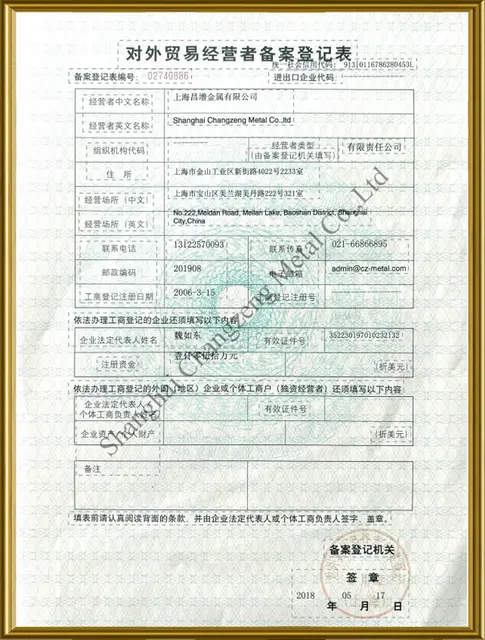 对外贸易经营者备案登记表
统一社会信用代码: 91310116786280453L
备案登记表编号: 02740886
进出口企业代码:
经营者中文名称 上海昌增金属有限公司
经营者英文名称 Shanghai Changzeng Metal Co.,ltd
组织机构代码 经营者类型 (由备案登记机关填写) 有限责任公司
住 所 上海市金山工业区新街路4022号2233室
经营场所（中文） 上海市宝山区美兰湖美丹路222号321室
经营场所（英文） No.222,Meidan Road, Meilan Lake, Baoshan District, Shanghai City,China
联系电话 13122570093 联系传真 021-66866895
邮政编码 201908 电子邮箱 admin@cz-metal.com
工商登记注册日期 2006-3-15 工商登记注册号
依法办理工商登记的企业还须填写以下内容
企业法定代表人姓名 魏如东 有效证件号 352230197010232132
注册资金 壹仟零伍拾万元 (折美元)
依法办理工商登记的外国（地区）企业或个体工商户（独资经营者）还须填写以下内容
企业法定代表人/个体工商负责人姓名 有效证件号
企业资产/个人财产 (折美元)
备注
填表前请认真阅读背面的条款，并由企业法定代表人或个体工商负责人签字、盖章。
备案登记机关
签 章
2018 年 05 月 17 日
Shanghai Changzeng Metal Co.,Ltd